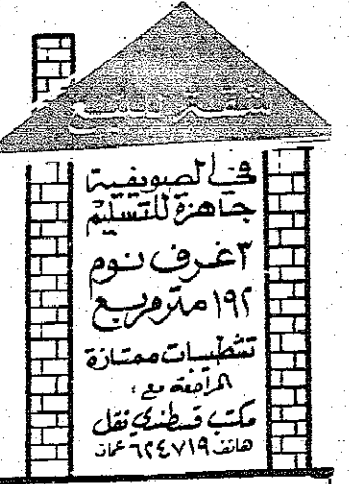 شقة للبيع
في الصويفية
جاهزة للتسليم
٣ غرف نوم
١٩٢ متر مربع
تشطيبات ممتازة
المراجعة مع:
مكتب قسطندي نقل
هاتف ٦٢٤٧١٩ عمان